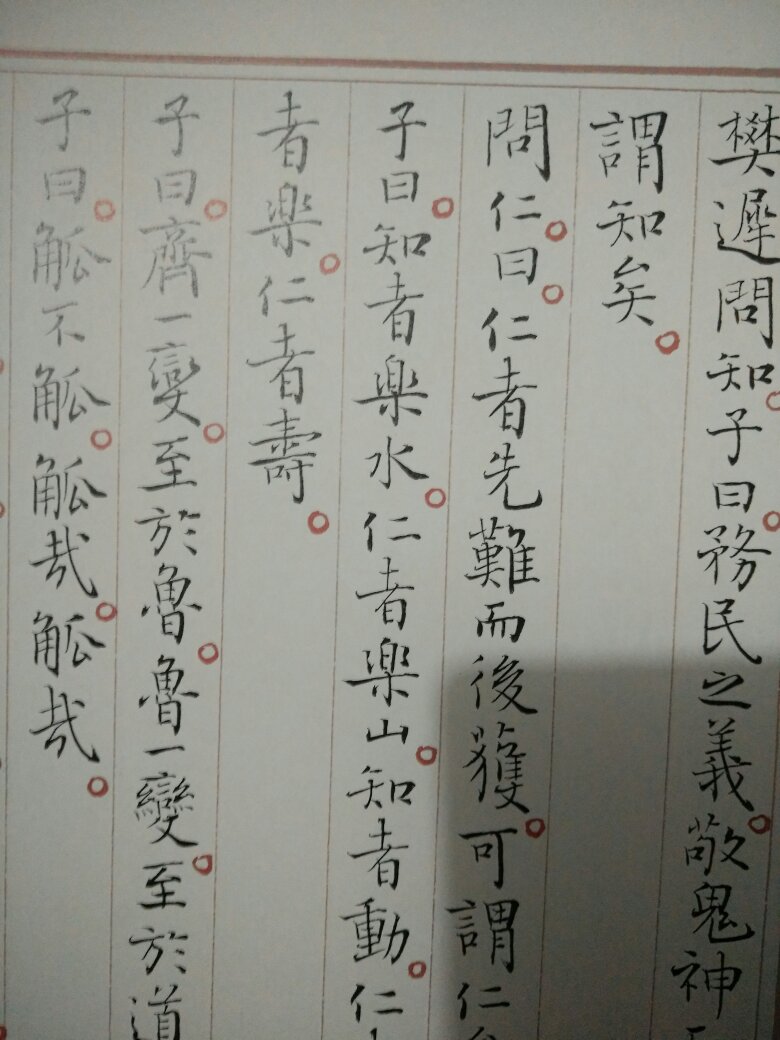 樊遲問知。子曰。務民之義。敬鬼神
謂知矣。
問仁。曰。仁者先難而後獲。可謂仁
子曰。知者楽水。仁者楽山。知者動。仁
者楽。仁者壽。
子曰。齊一變。至於魯。魯一變。至於道
子曰。觚不觚。觚哉。觚哉。